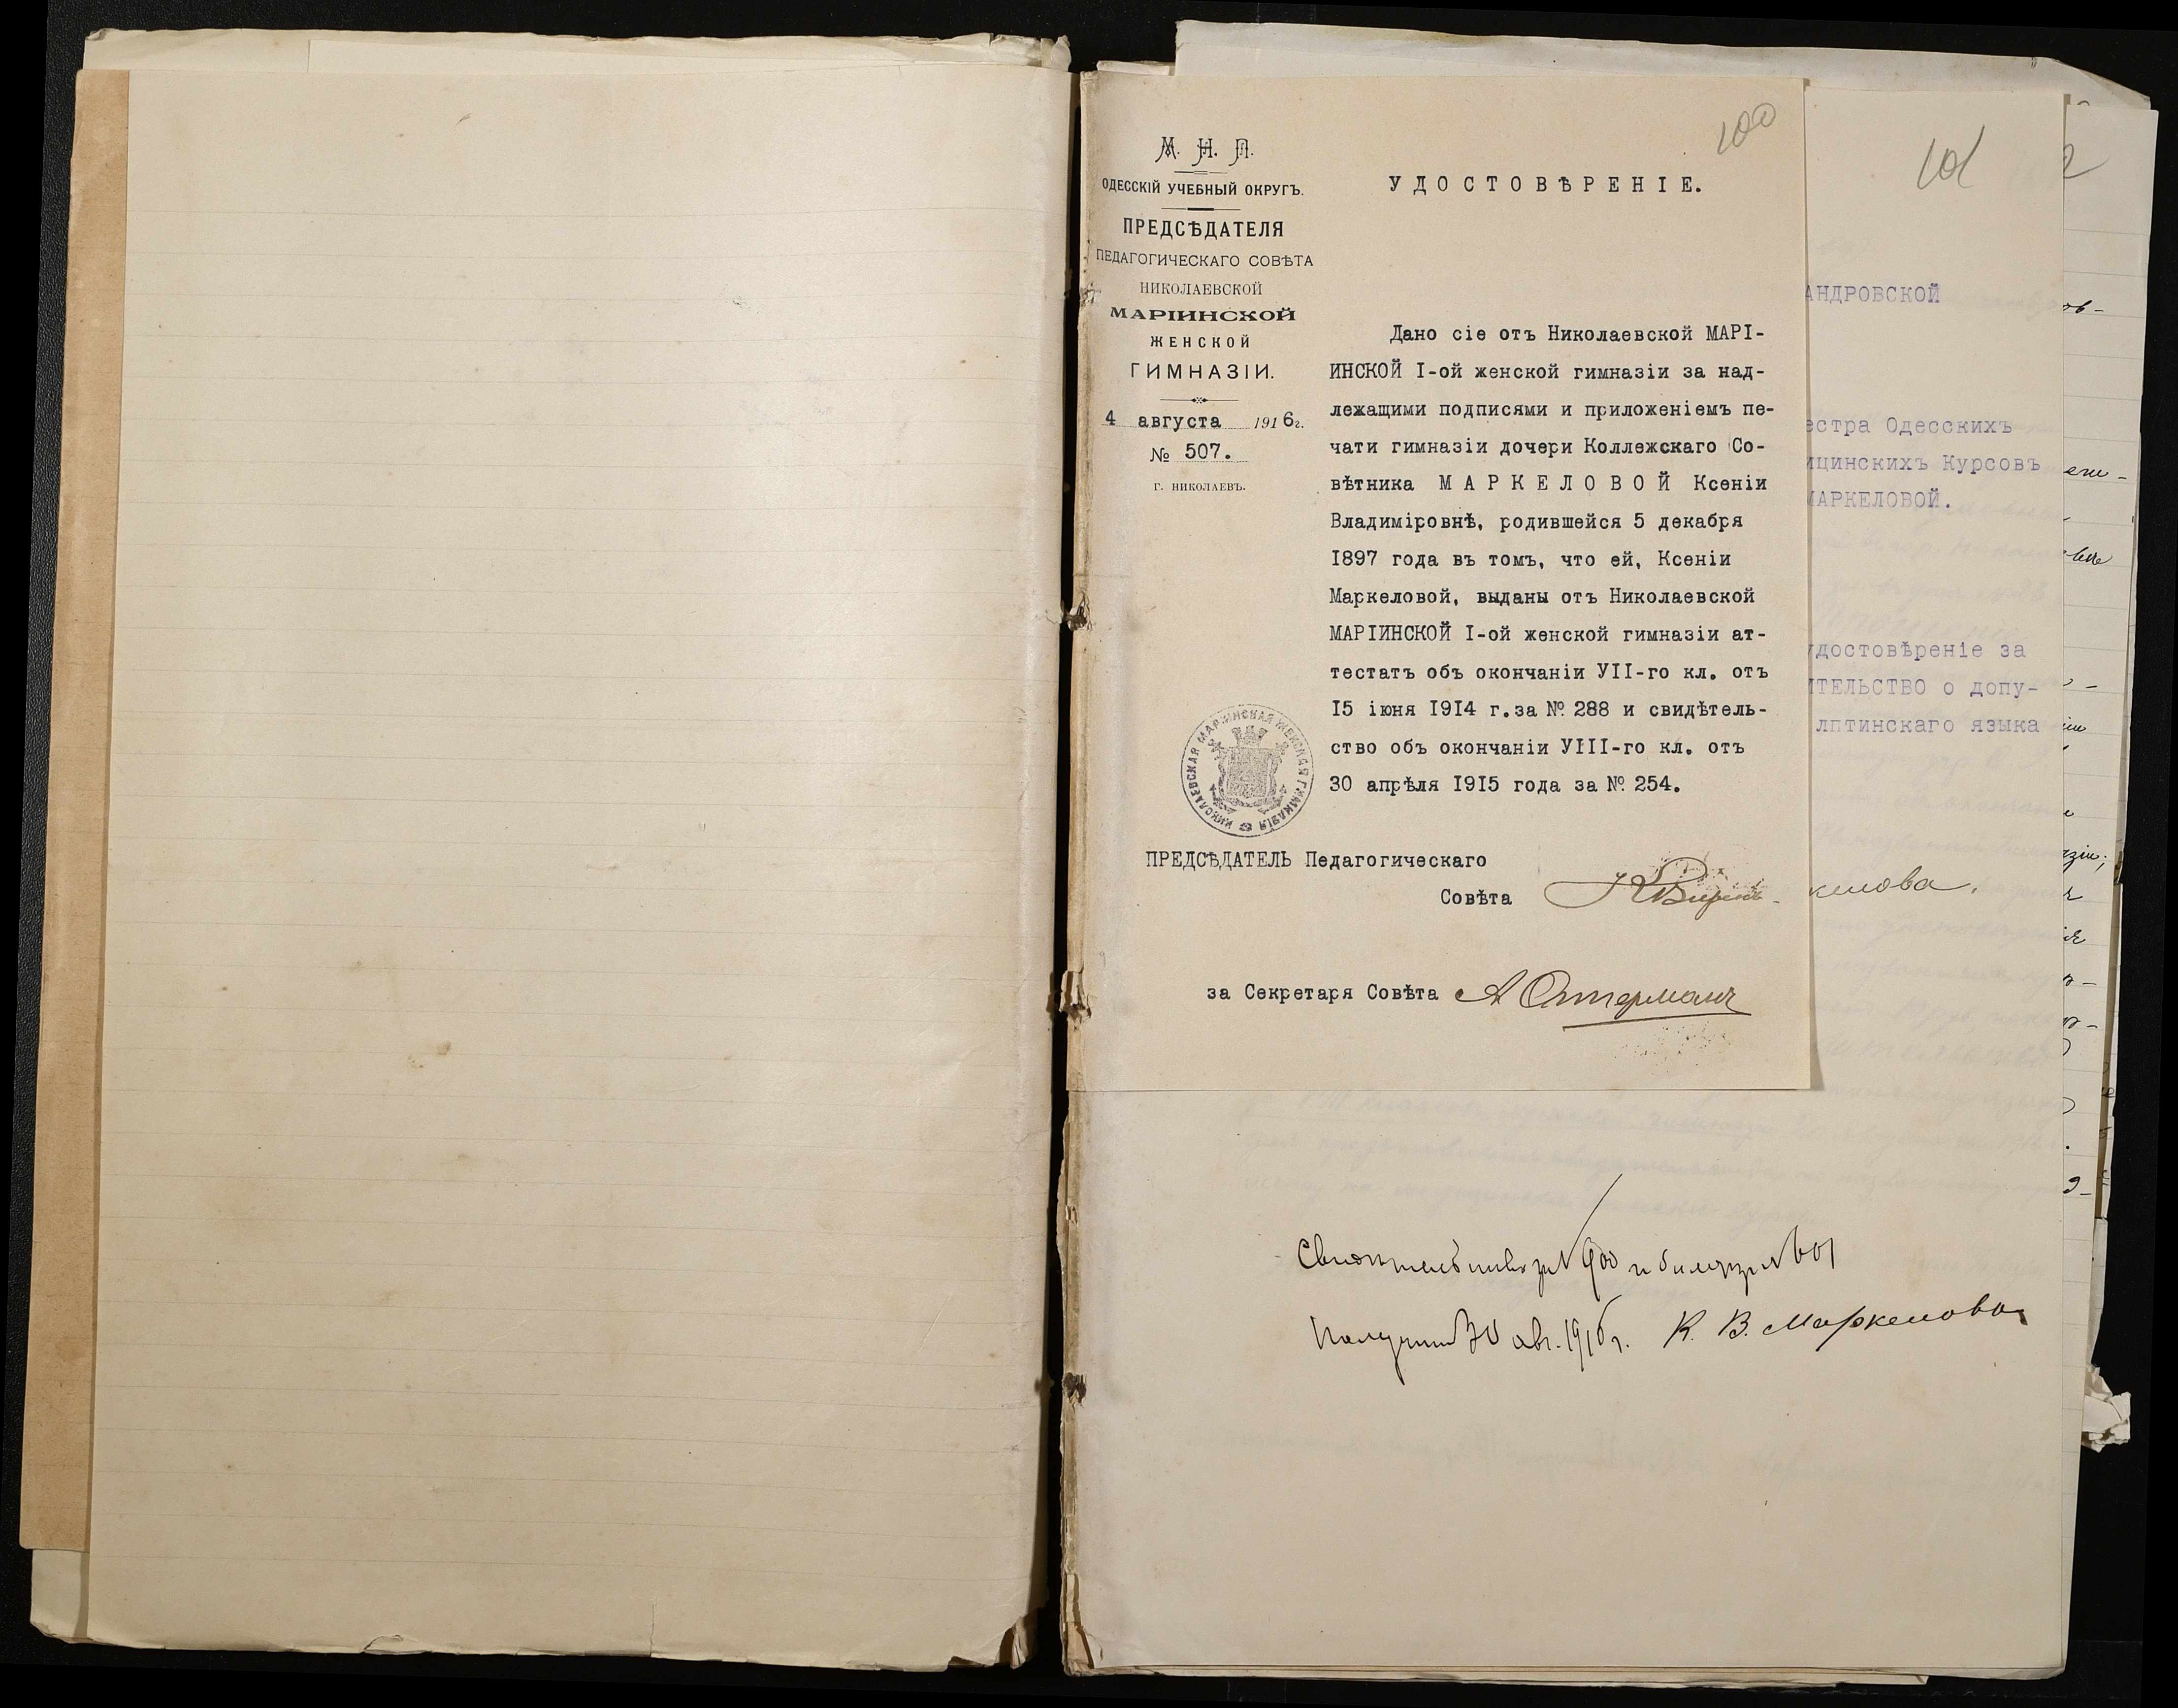 100
М. Н. П.
ОДЕССКІЙ УЧЕБНЫЙ ОКРУГЪ.
ПРЕДСѢДАТЕЛЯ
ПЕДАГОГИЧЕСКАГО СОВѢТА
НИКОЛАЕВСКОЙ
МАРІИНСКОЙ
ЖЕНСКОЙ
ГИМНАЗІИ.
4 августа 1916г.
№ 507.
Г. НИКОЛАЕВЪ.
УДОСТОВѢРЕНІЕ.
Дано сіе отъ Николаевской МАРІ-
ИНСКОЙ I-ой женской гимназіи за над-
лежащими подписями и приложеніемъ пе-
чати гимназіи дочери Коллежскаго Со-
вѣтника МАРКЕЛОВОЙ Ксеніи
Владиміровнѣ, родившейся 5 декабря
1897 года въ томъ, что ей, Ксеніи
Маркеловой, выданы отъ Николаевской
МАРІИНСКОЙ I-ой женской гимназіи ат-
тестатъ объ окончаніи УІІ-го кл. отъ
15 іюня 1914 г. за № 288 и свидѣтель-
ство объ окончаніи УІІІ-го кл. отъ
30 апрѣля 1915 года за № 254.
НИКОЛАЕВСКАЯ МАРІИНСКАЯ ЖЕНСКАЯ ГИМНАЗІЯ
ПРЕДСѢДАТЕЛЬ Педагогическаго
Совѣта
за Секретаря Совѣта А Остерманъ
101
АНДРОВСКОЙ
естра Одесскихъ
ицинскихъ Курсовъ
МАРКЕЛОВОЙ.
удостовѣреніе за
ИТЕЛЬСТВО о допу-
лптинскаго языка
келова.
30 авг. 1916 г. К. В. Маркелова